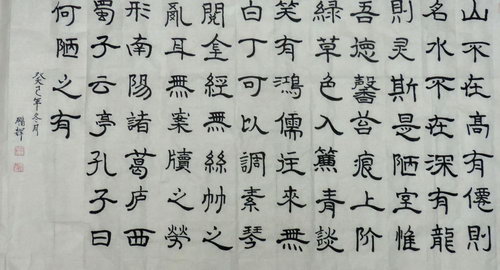 山不在高有僊則
名水不在深有龍
則灵斯是陋室惟
吾德馨苔痕上阶
緑草色入簾青談
笑有鴻儒往來無
白丁可以調素琴
閱金經無絲竹之
亂耳無案牘之勞
形南陽諸葛庐西
蜀子云亭孔子曰
何陋之有
癸巳年冬月